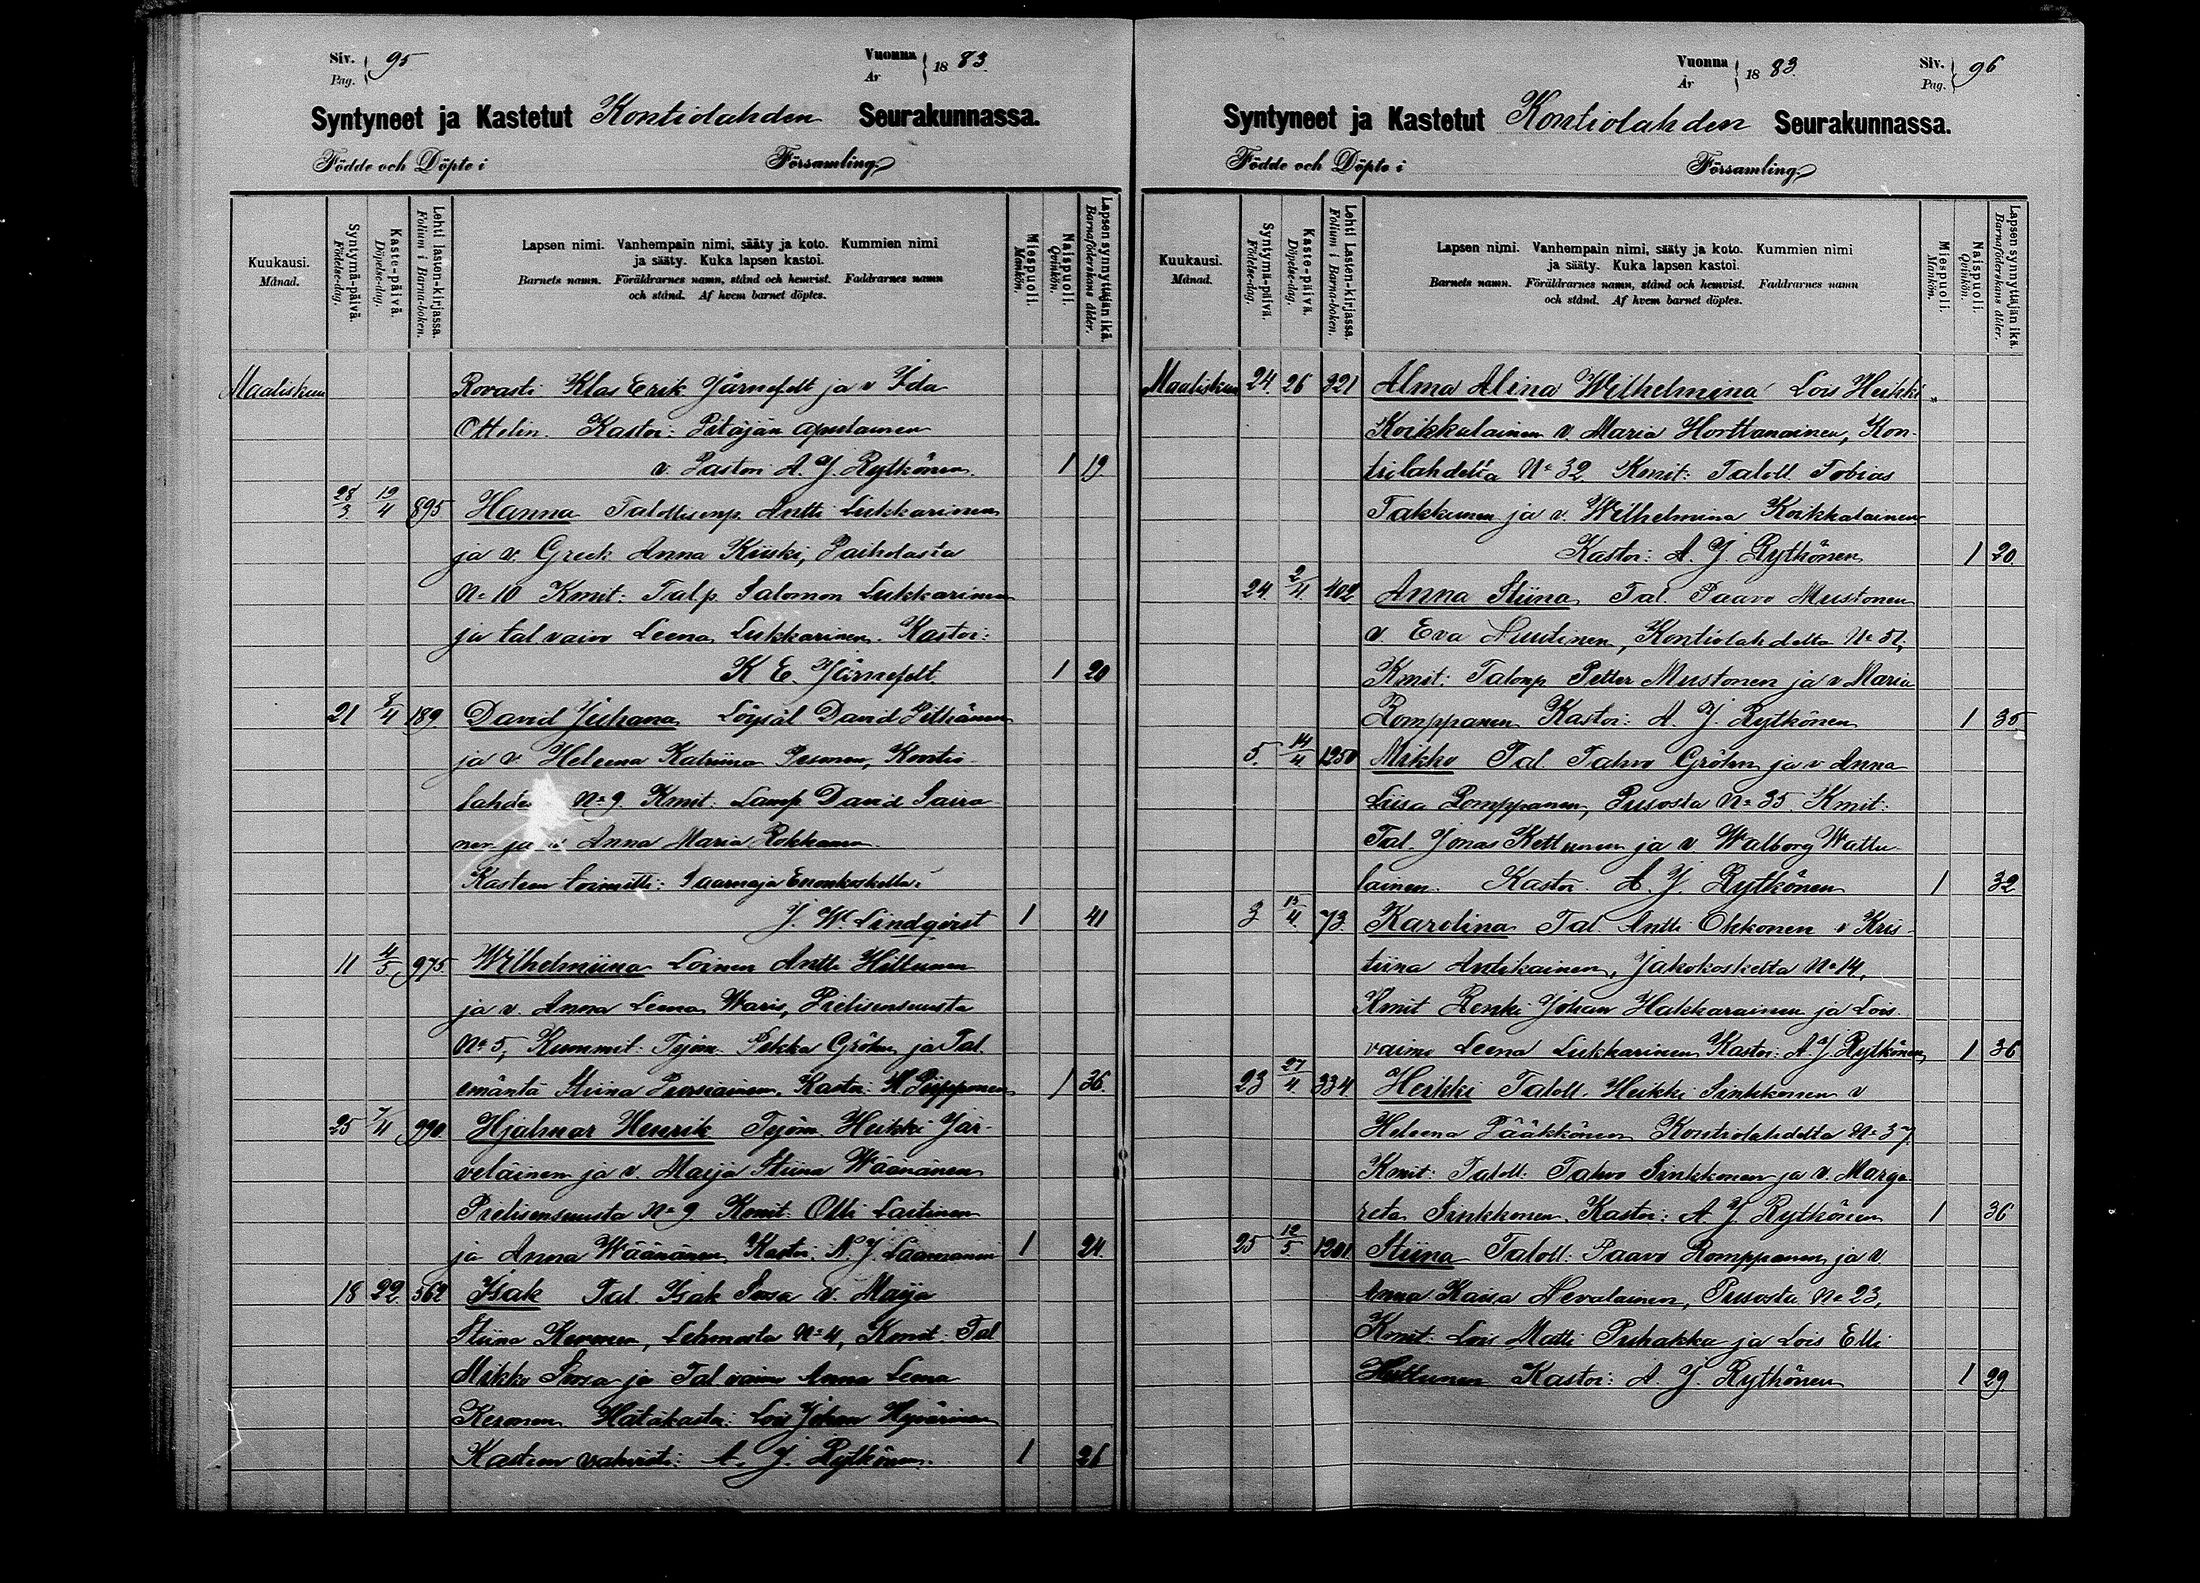 Siv. 95
Pag.
Vuonna 1883.
År
Syntyneet ja Kastetut Kontiolahden Seurakunnassa.
Födde och Döpte i Församling.
Kuukausi.
Månad.
Syntymä-päivä.
Födelse-dag.
Kaste-päivä.
Döpelse-dag.
Lehti lasten-kirjassa.
Folium i Barna-boken.
Lapsen nimi. Vanhempain nimi, sääty ja koto. Kummien nimi
ja sääty. Kuka lapsen kastoi.
Barnets namn. Föräldrarnes namn, stånd och hemvist. Faddrarnes namn
och stånd. Af hvem barnet döptes.
Miespuoli.
Mankön.
Naispuoli.
Qvinkön.
Lapsen synnyttäjän ikä.
Barnaföderskans ålder.
Maaliskuu Rovasti Klas Erik Järnefelt ja v Ida
Ottelin. Kastoi: Pitäjän apulainen
v. Pastori A. J. Rytkönen. 1 19
28/3 19/4 895 Hanna Talollisenp. Antti Lukkarinen
ja v. Greek. Anna Kiiski, Paiholasta
No 10 Kmit: Tal.p. Salomon Lukkarinen
ja tal vaimo Leena Lukkarinen. Kastoi:
K E. Järnefelt 1 20
21 8/4 189 David Juhana Löysäl David Pitkänen
ja v Heleena Katriina Pesonen, Kontio
lahde No 9 Kmit: Lamp David Saira
nen ja v Anna Maria Rokkanen
Kasteen toimitti: Saarnaja Enonkoskella:
J. W. Lindqvist 1 41
11 4/5 975 Wilhelmiina Loinen Antti Hiltunen
ja v. Anna Leena Waris, Pielisensuusta
No 5, Kummit: Tyjöm. Pekka Gröhn ja Tal.
emäntä Stiina Kastoi: H. Piipponen 1 36
25 7/4 990 Hjalmar Henrik Tyjöm. Heikki Jär-
veläinen ja v. Maija Stiina Wäänänen
Pielisensuusta No 9. Kmit: Olli Laitinen
ja Anna Wäänänen, Kastoi: N. J. Laamanen 1 24.
18 22. 562 Isak Tal. Isak Sorsa v. Maija
Stiina Keronen, Lehmosta No 4, Kmit: Tal
Mikko Sorsa ja Tal vaimo Anna Leena
Keronen Hätäkasta: Lois Johan Hyvärinen
Kasteen vahvisti: A. J. Rytkönen. 1 26
Vuonna 1883.
År
Siv. 96
Pag.
Syntyneet ja Kastetut Kontiolahden Seurakunnassa.
Födde och Döpte i Församling.
Kuukausi.
Månad.
Syntymä-päivä.
Födelse-dag.
Kaste-päivä.
Döpelse-dag.
Lehti Lasten-kirjassa.
Folium i Barna-boken.
Lapsen nimi. Vanhempain nimi, sääty ja koto. Kummien nimi
ja sääty. Kuka lapsen kastoi.
Barnets namn. Föräldrarnes namn, stånd och hemvist. Faddrarnes namn
och stånd. Af hvem barnet döptes.
Miespuoli.
Mankön.
Naispuoli.
Qvinkön.
Lapsen synnyttäjän ikä.
Barnaföderskans ålder.
Maaliskuu 24. 26 321 Alma Alina Wilhelmina Lois Heikki
Koikkalainen v. Maria Horttanainen, Kon-
tiolahdelta No 32 Kmit: Taloll Tobias
Takkunen ja v. Wilhelmina Koikkalainen
Kastoi: A. J. Rytkönen 1 20
24. 2/4 402 Anna Stiina Tal. Paavo Mustonen
v Eva Nuutinen, Kontiolahdelta No 51,
Kmit: Talonp Petter Mustonen ja v Maria
Romppanen Kastoi: A. J. Rytkönen 1 35
5. 14/4 1250 Mikko Tal. Tahvo Gröhn ja v Anna
Liisa Romppanen, Pusosta No 35 Kmit:
Tal. Jonas Kettunen ja v Walborg Wattu
lainen. Kastoi. A. J. Rytkönen 1 32
3 15/4 73. Karolina Tal Antti Okkonen v Kris-
tiina Antikainen, Jakokoskelta No 14,
Kmit Renki Johan Hakkarainen ja Lois
vaimo Leena Lukkarinen Kastoi: A. J. Rytkönen 1 36
23 27/4 334 Heikki Taloll. Heikki Sinkkonen v
Heleena Pääkkönen Kontiolahdelta No 37.
Kmit: Taloll: Tahvo Sinkkonen ja v. Marga
reta Sinkkonen. Kastoi: A. J. Rytkönen 1 36
25 12/5 1201 Stiina Taloll. Paavo Romppanen ja v
Anna Kaisa Nevalainen, Pusosta No 23,
Kmit: Lois Matti Puhakka ja Lois Elli
Hiltunen Kastoi: A. J. Rytkönen 1 29.